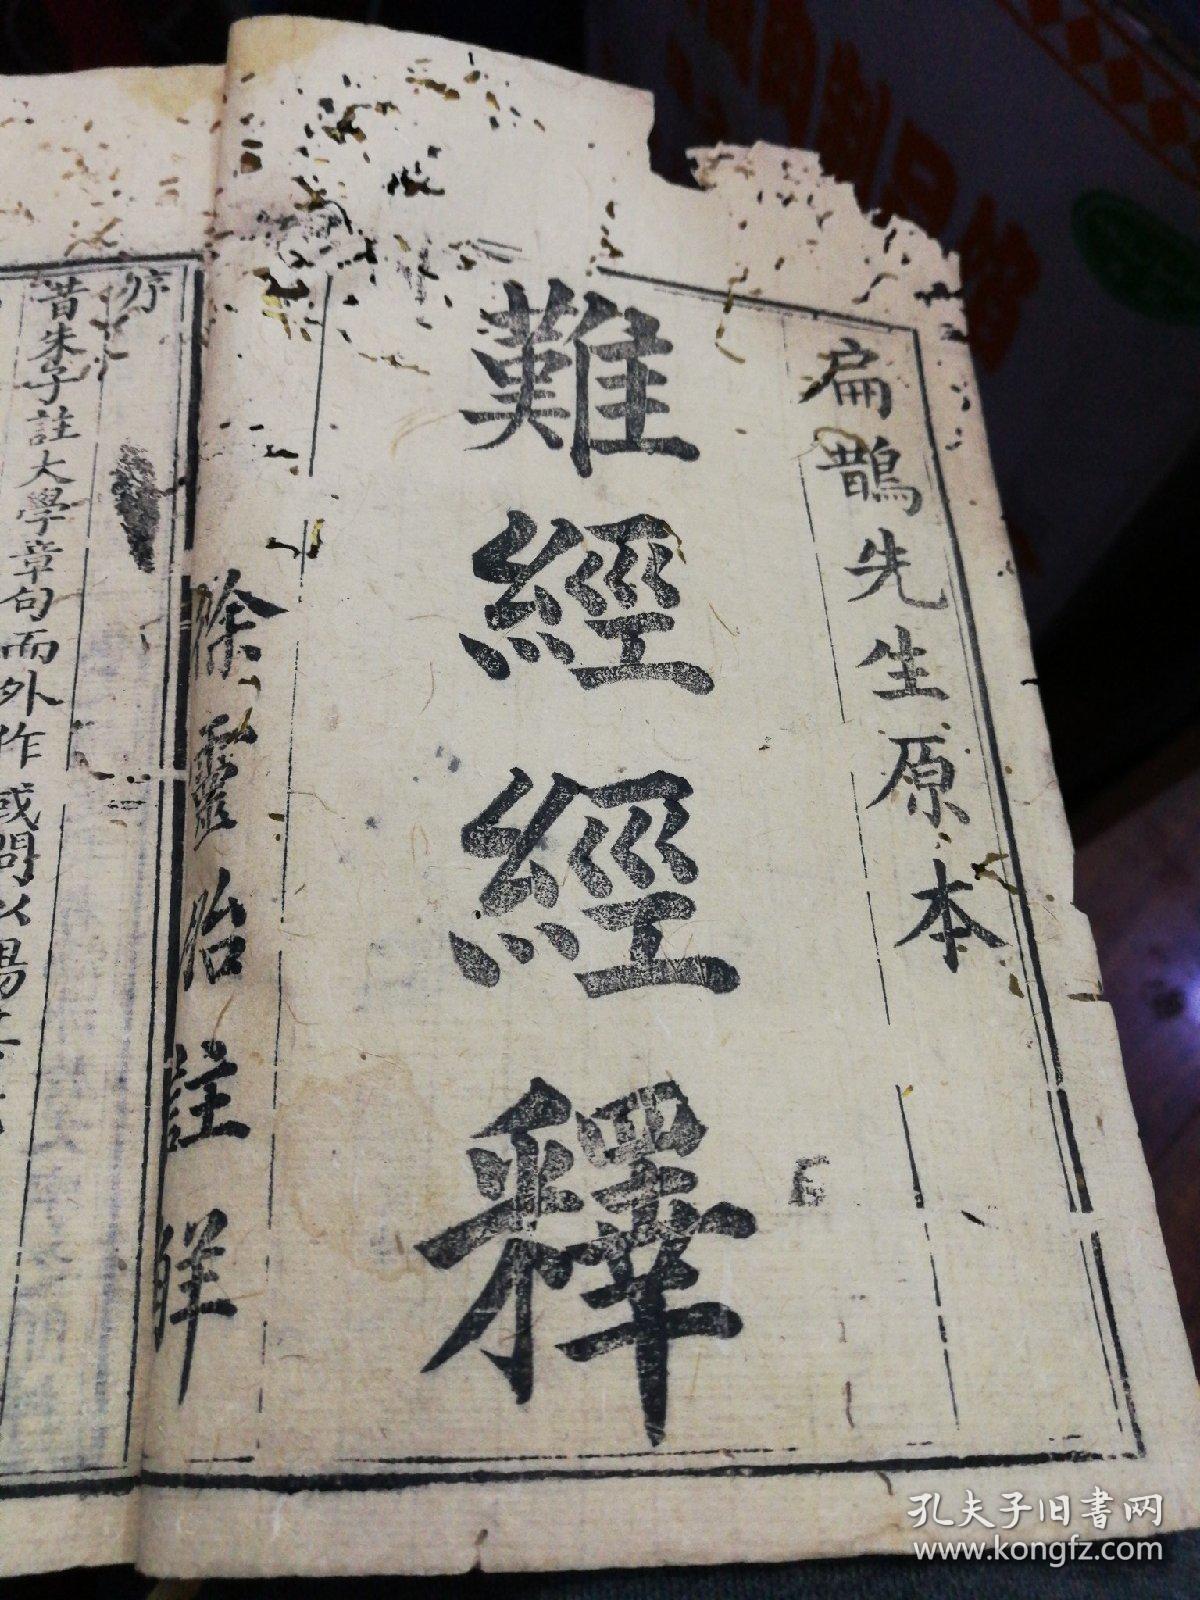 扁鵲先生原本
難經經釋
徐靈胎註詳
序
昔朱子註大學章句而外作或問以
孔夫子旧书网
www.kongfz.com